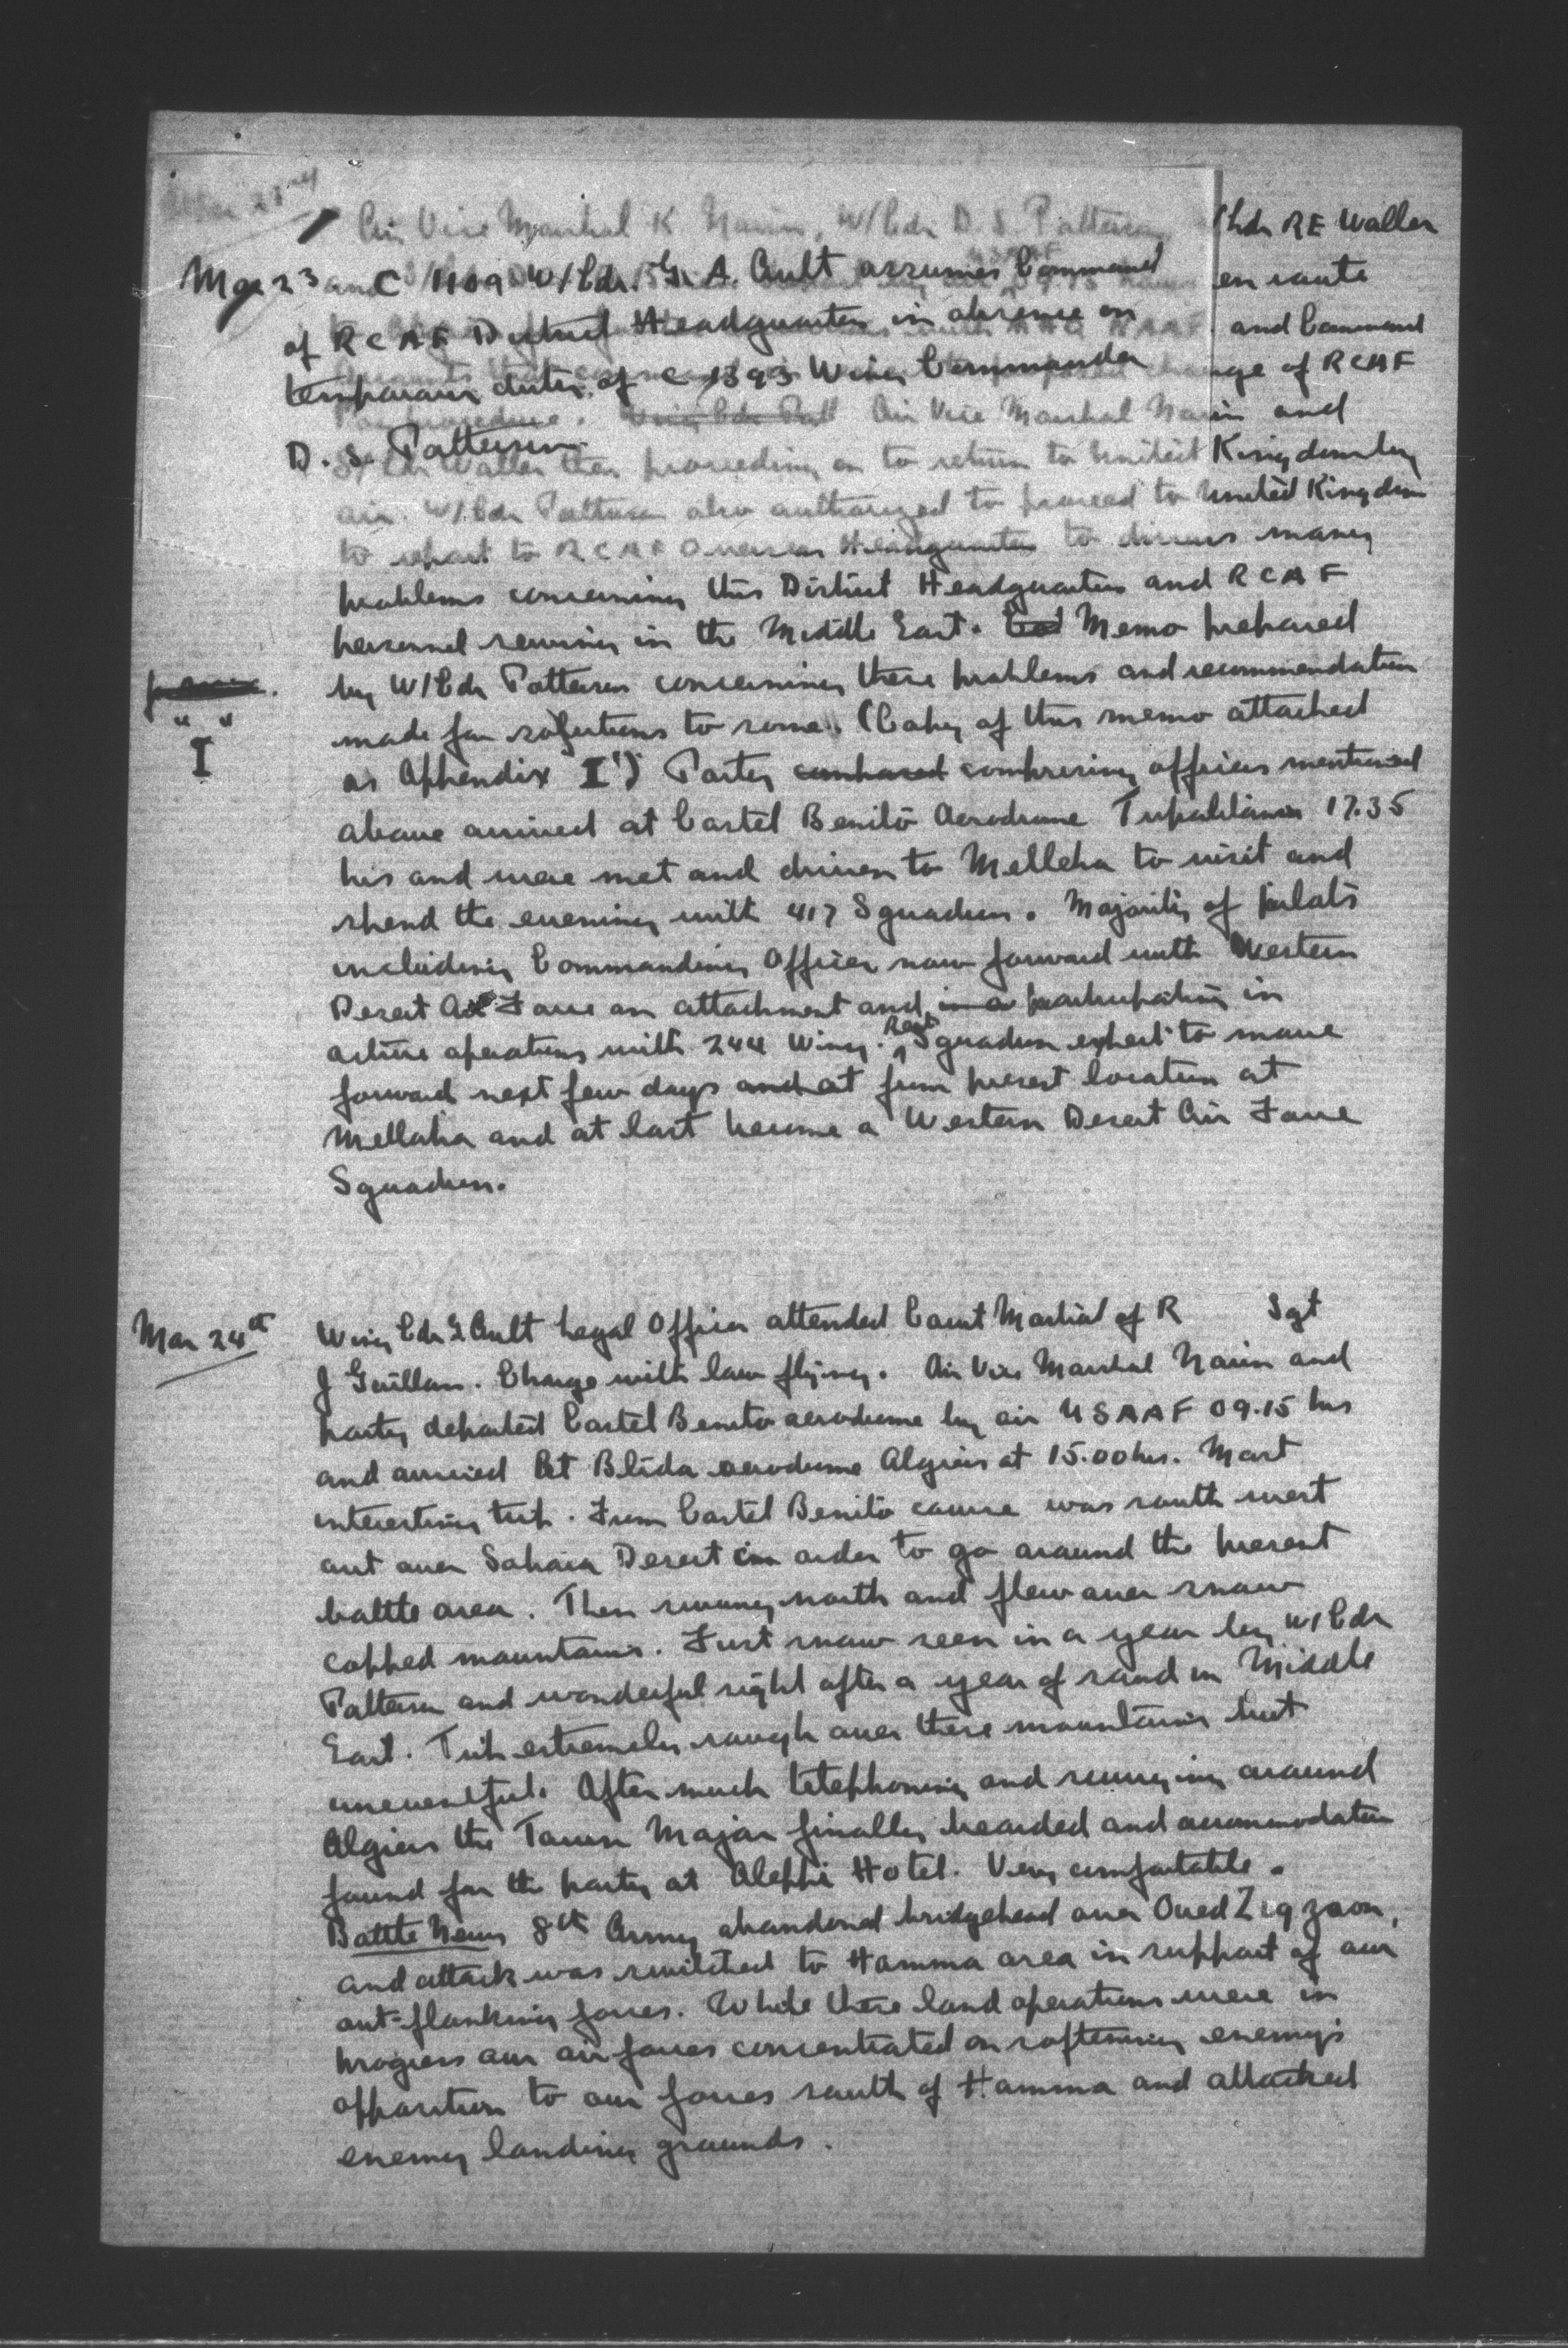 Mar 23rd
Air Vice Marshal K. Nairn, W/Cdr D. S. Patterson
/Ldr RE Waller
Mar 23 C 1109 W/Cdr. G. A. Ault assumes Command
en route
of RCAF District Headquarters in absence on
and Command
temporary duty of C 1393 Wing Commander
of RCAF
D. S. Patterson.
Air Vice Marshal Nairn and
Waller then proceeding on to return to United Kingdom by
air. W/Cdr Patterson also authorized to proceed to United Kingdom
to report to RCAF Overseas Headquarters to discuss many
problems concerning this District Headquarters and RCAF
personnel serving in the Middle East. Memo prepared
by W/Cdr Patterson concerning these problems and recommendation
made for solutions to some. (Copy of this memo attached
" "
I
as Appendix "I") Party comprising officers mentioned
above arrived at Castel Benito Aerodrome Tripolitania 17.35
hrs and were met and driven to Melleha to visit and
spend the evening with 417 Squadron. Majority of pilots
including Commanding Officer now forward with Western
Desert Air Force on attachment and participating in
active operations with 244 Wing. Rest Squadron expect to move
forward next few days from present location at
Mellaha and at last become a Western Desert Air Force
Squadron.
Mar 24th
Wing Cdr G Ault Legal Officer attended Court Martial of R Sgt
J Guillan. Charge with low flying. Air Vice Marshal Nairn and
party departed Castel Benito aerodrome by air USAAF 09.15 hrs
and arrived at Blida aerodrome Algiers at 15.00 hrs. Most
interesting trip. From Castel Benito course was south west
out over Sahara Desert in order to go around the present
battle area. Then swung north and flew over snow
capped mountains. First snow seen in a year by W/Cdr
Patterson and wonderful sight after a year of sand in Middle
East. Trip extremely rough over these mountains but
uneventful. After much telephoning and scurrying around
Algiers the Town Major finally bearded and accommodation
found for the party at Aleppi Hotel. Very comfortable.
Battle News 8th Army abandoned bridgehead over Oued Zigzaon,
and attack was switched to Hamma area in support of our
out-flanking forces. While these land operations were in
progress our air forces concentrated on softening enemy's
opposition to our forces south of Hamma and attacked
enemy landing grounds.